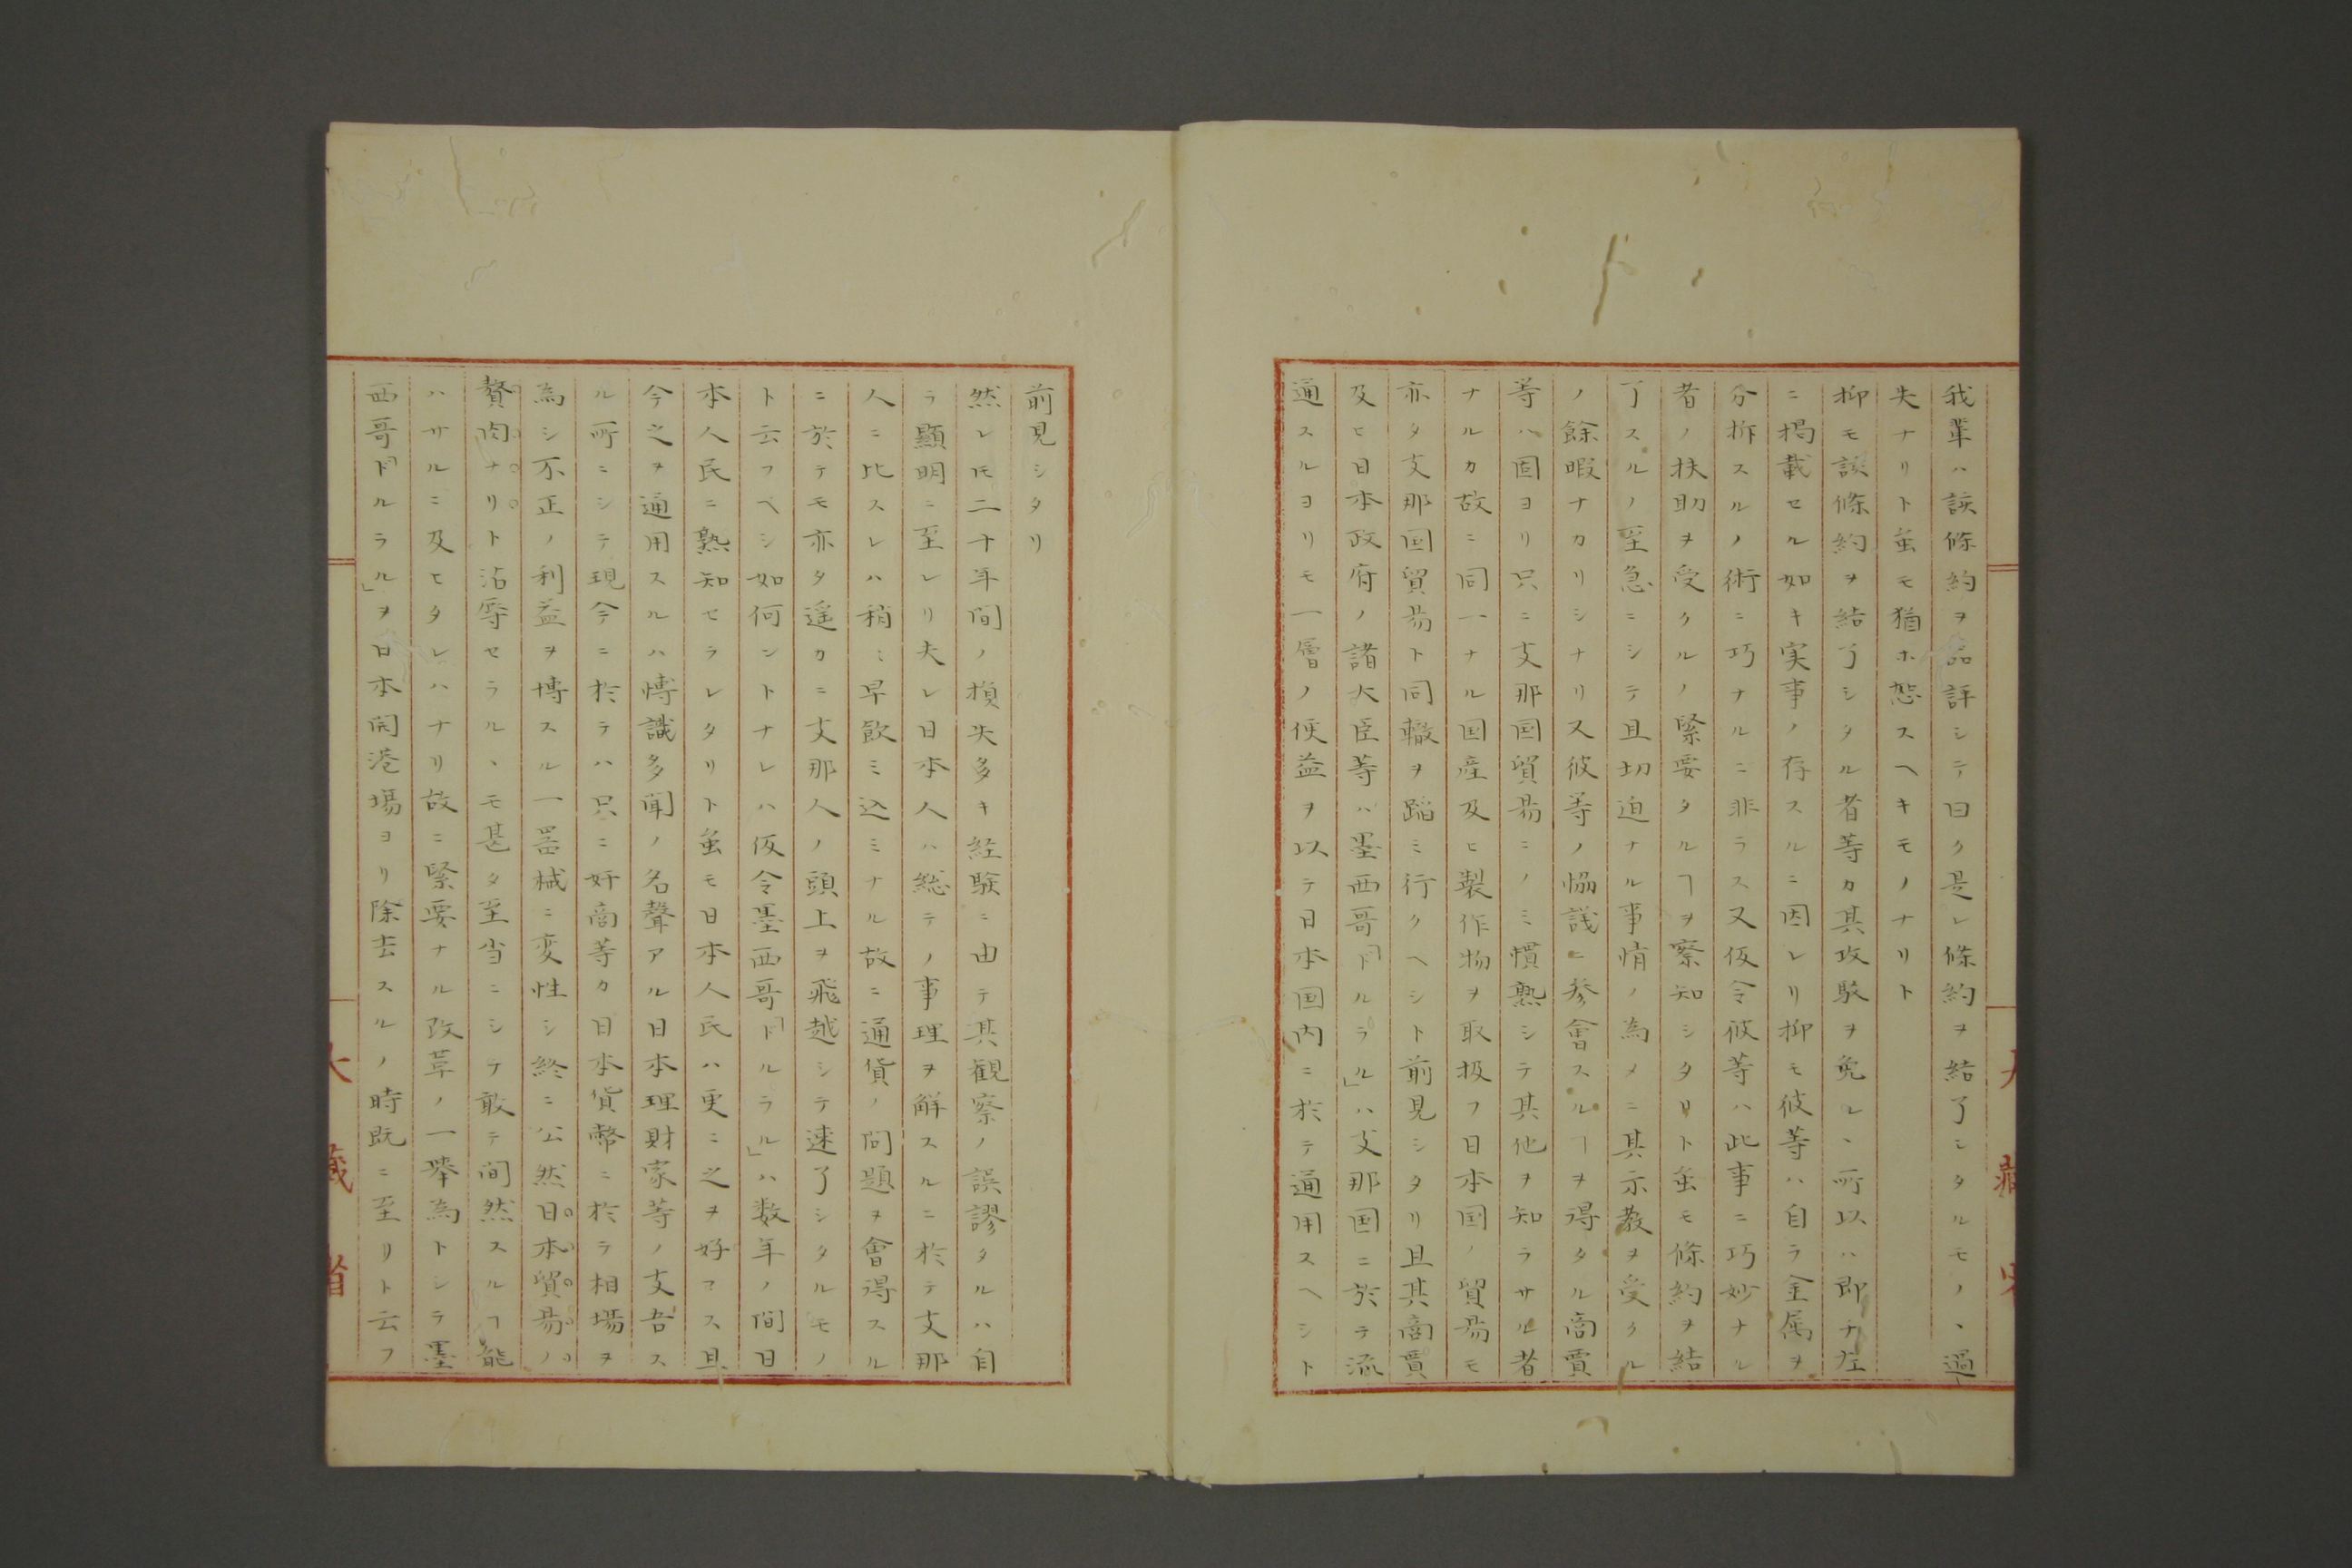 我輩ハ該條約ヲ品評シテ曰ク是レ條約ヲ結了シタルモノヽ過
失ナリト虽モ猶ホ恕スヘキモノナリト
抑モ該條約ヲ結了シタル者等カ其攻駁ヲ免レヽ所以ハ即チ左
ニ掲載セル如キ実事ノ存スルニ因レリ抑モ彼等ハ自ラ金属ヲ
分拆スルノ術ニ巧ナルニ非ラス又仮令彼等ハ此事ニ巧妙ナル
者ノ扶助ヲ受クルノ緊要タルヿヲ察知シタリト虽モ條約ヲ結
了スルノ至急ニシテ且切迫ナル事情ノ為メニ其示教ヲ受クル
ノ餘暇ナカリシナリ又彼等ノ恊議ニ参會スルヿヲ得タル商賈
等ハ固ヨリ只ニ支那国貿昜ニノミ慣熟シテ其他ヲ知ラサル者
ナルカ故ニ同一ナル国産及ヒ製作物ヲ取扱フ日本国ノ貿昜モ
亦タ支那国貿昜ト同轍ヲ蹈ミ行クヘシト前見シタリ且其商賈
及ヒ日本政府ノ諸大臣等ハ墨西哥「ドルラル」ハ支那国ニ於テ流
通スルヨリモ一層ノ便益ヲ以テ日本国内ニ於テ通用スヘシト
大藏省
前見シタリ
然レ𪜈二十年間ノ損失多キ経驗ニ由テ其観察ノ誤謬タルハ自
ラ顯明ニ至レリ夫レ日本人ハ総テノ事理ヲ解スルニ於テ支那
人ニ比スレハ稍〻早飲ミ込ミナル故ニ通貨ノ問題ヲ會得スル
ニ於テモ亦タ遥カニ支那人ノ頭上ヲ飛越シテ速了シタルモノ
ト云フヘシ如何ントナレハ仮令墨西哥「ドルラル」ハ数年ノ間日
本人民ニ熟知セラレタリト虽モ日本人民ハ更ニ之ヲ好マス且
今之ヲ通用スルハ愽識多聞ノ名聲アル日本理財家等ノ支吾ス
ル所ニシテ現今ニ於テハ只ニ奸商等カ日本貨幣ニ於テ相場ヲ
為シ不正ノ利益ヲ博スル一噐械ニ変性シ終ニ公然日本貿昜ノ
贅肉ナリト沾辱セラルヽモ甚タ至当ニシテ敢テ间然スルヿ能
ハサルニ及ヒタレハナリ故ニ緊要ナル改革ノ一舉為トシテ墨
西哥「ドルラル」ヲ日本開港場ヨリ除去スルノ時既ニ至リト云フ
大藏省